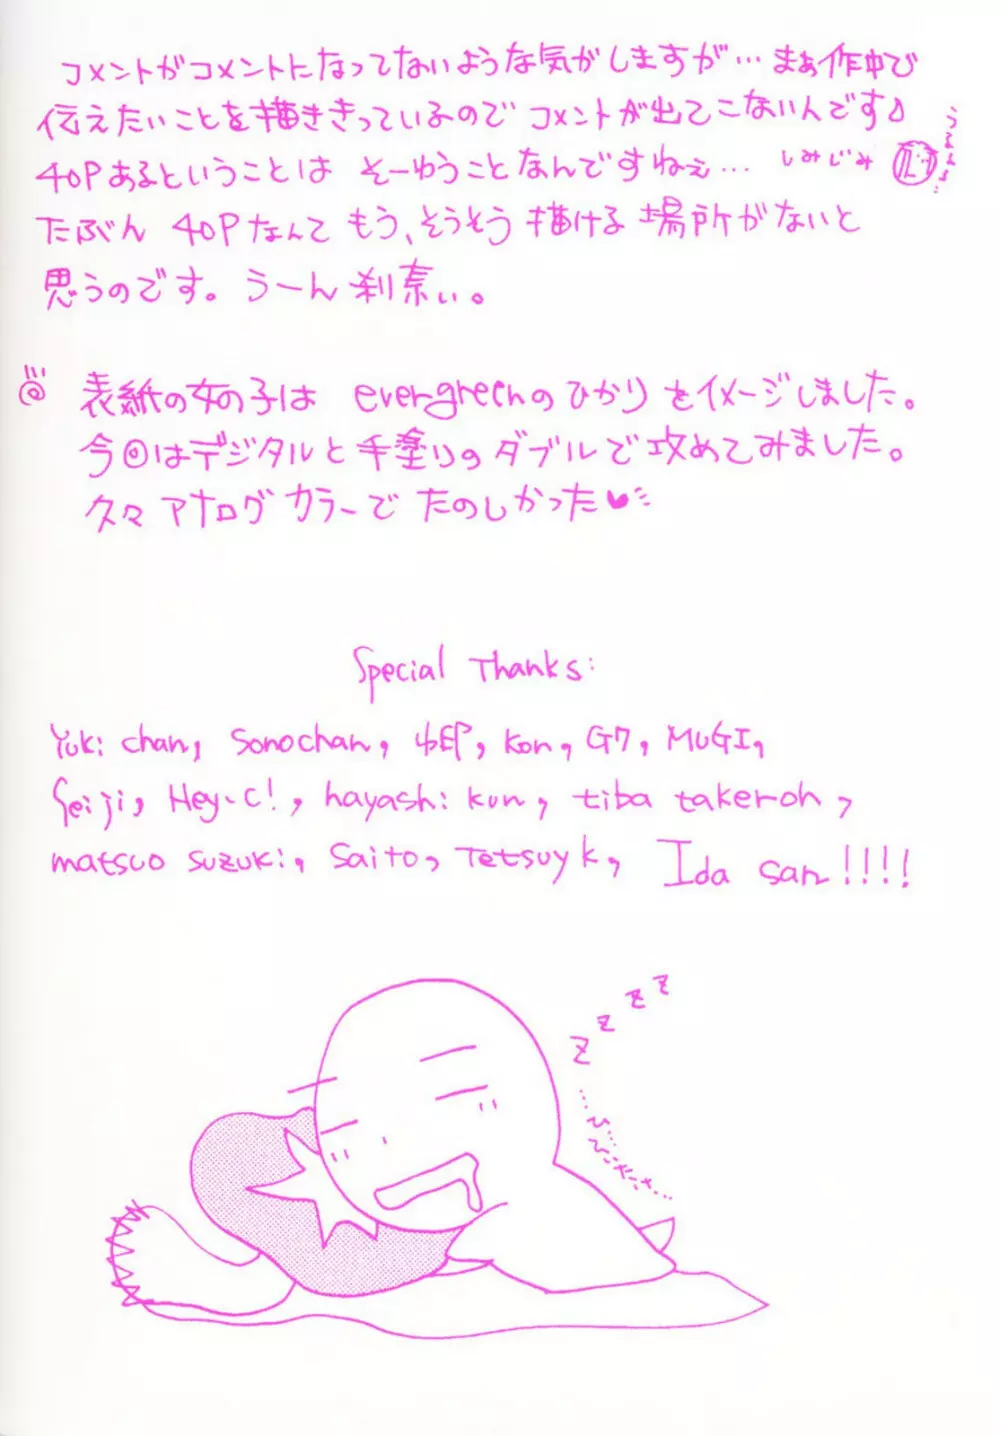 コメントがコメントになってないような気がしますが…まぁ作中で
伝えたいことを描ききっているのでコメントが出てこないんです♪
40Pあるということは そーゆうことなんですねぇ… しみじみ
たぶん 40Pなんて もう、そうそう 描ける場所がないと
思うのです。うーん 刹素い。
表紙の女の子は evergreenのひかりをイメージしました。
今回はデジタルと手塗りのダブルで攻めてみました。
久々アナログカラーでたのしかった♥
Special Thanks:
Yuki chan, Sonochan, ゆEP, Kon, G7, MUGI,
Seiji, Hey-C!, hayashi kun, tiba takeroh,
matsuo suzuki, Saito, Tetsuyk, Ida san!!!!
z z z z